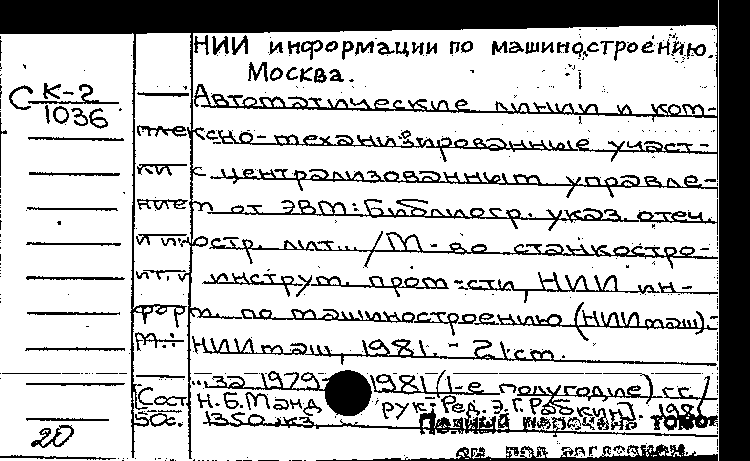 НИИ информации по машиностроению.
Москва.
С К-2
1036
Автоматические линии и ком-
плексно-механизированные участ-
ки с централизованным управле-
нием от ЭВМ: Библиогр. указ. отеч.
и иностр. лит... / М-во станкостро-
ит. и инструм. пром-сти, НИИ ин-
форм. по машиностроению (НИИмаш).-
М.: НИИмаш, 1981. - 21 см.
...за 1979- 1981 (1-е полугодие) гг. /
[Сост. Н.Б. Манд рук; Ред. Э.Г. Рабкин]. 198
50с. 1350 экз.
Полный перечень томов
см. под заглавием.
20